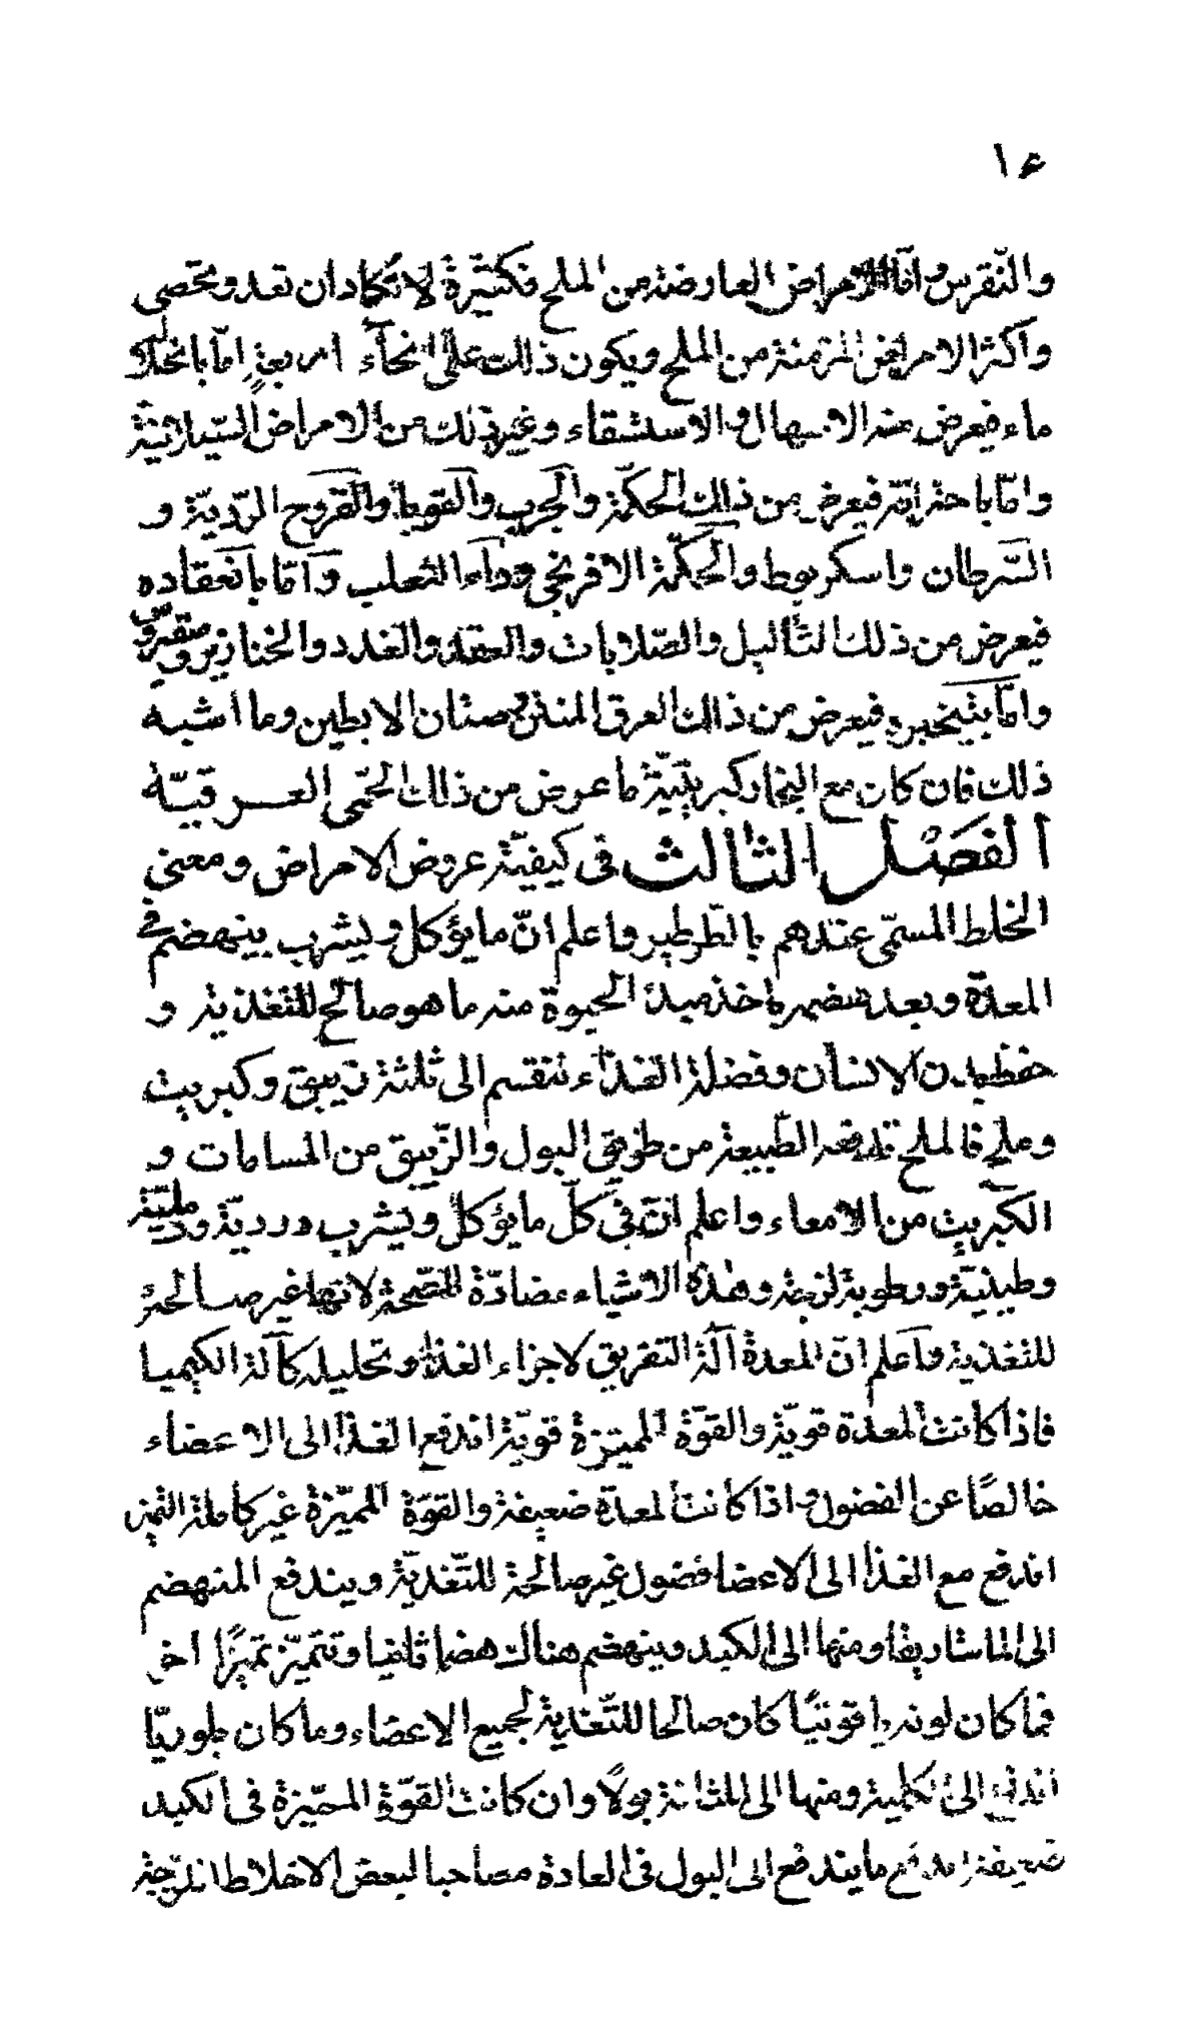 ١٤
والنّقرس وامّا الامراض العارضة من الملح فكثيرة لا تكاد ان تعد وتحصى
واكثر الامراض المزمنة من الملح ويكون ذلك على انحآء اربعةٍ امّا بانحلاله
ماء فيعرض منه الاسهال والاستسقاء وغير ذلك من الامراض السّيلانيّة
وامّا باحتراقه فيعرض من ذلك الحكّة والجرب والقوبا والقروح الرّديّة و
السّرطان واسكربوط والحكّة الافرنجى وداء الثعلب وامّا بانعقاده
فيعرض من ذلك الثآليل والصّلابات والعقد والغدد والخنازير و سقيروس
وامّا بتبخيره فيعرض من ذلك العرق المنتن وصنان الابطين وما اشبه
ذلك فان كان مع البخار كبريتيّة ما عرض من ذلك الحمّى العرقيّة
الفصل الثالث فى كيفيّة عروض الامراض ومعنى
الخلط المسمّى عندهم بالطّرطير واعلم انّ ما يؤكل ويشرب ينهضم فى
المعدة وبعد هضمه ياخذ مبدء الحيوة منه ما هو صالح للتغذية و
حفظ بدن الانسان وفضلة الغذاء تنقسم الى ثلثة زيبق وكبريت
وملح فالملح تدفعه الطّبيعة من طريق البول والزّيبق من المسامات و
الكبريت من الامعاء واعلم انّ فى كلّ ما يؤكل ويشرب درديّة ورمليّة
وطينيّة ورطوبة لزجة وهذه الاشياء مضادّة للصّحة لانّها غير صالحة
للتغذية واعلم انّ المعدة آلة التفريق لاجزاء الغذاء وتحليله كآلة الكيميا
فاذا كانت المعدة قويّة والقوّة المميّزة قويّة اندفع الغذا الى الاعضاء
خالصًا عن الفضول واذا كانت المعدة ضعيفة والقوّة المميّزة غير كاملة التميز
اندفع مع الغذا الى الاعضا فضول غير صالحة للتّغذيّة ويندفع المنهضم
الى الماساريقا ومنها الى الكبد وينهضم هناك هضما ثانيا وتتميّز تميزًا اخر
فما كان لونه ياقوتيًا كان صالحا للتّغذية لجميع الاعضاء وما كان بلوريّا
اندفع الى الكلية ومنها الى المثانة بولًا وان كانت القوّة المميّزة فى الكبد
ضعيفة اندفع ما يندفع الى البول فى العادة مصاحبا لبعض الاخلاط اللزجة